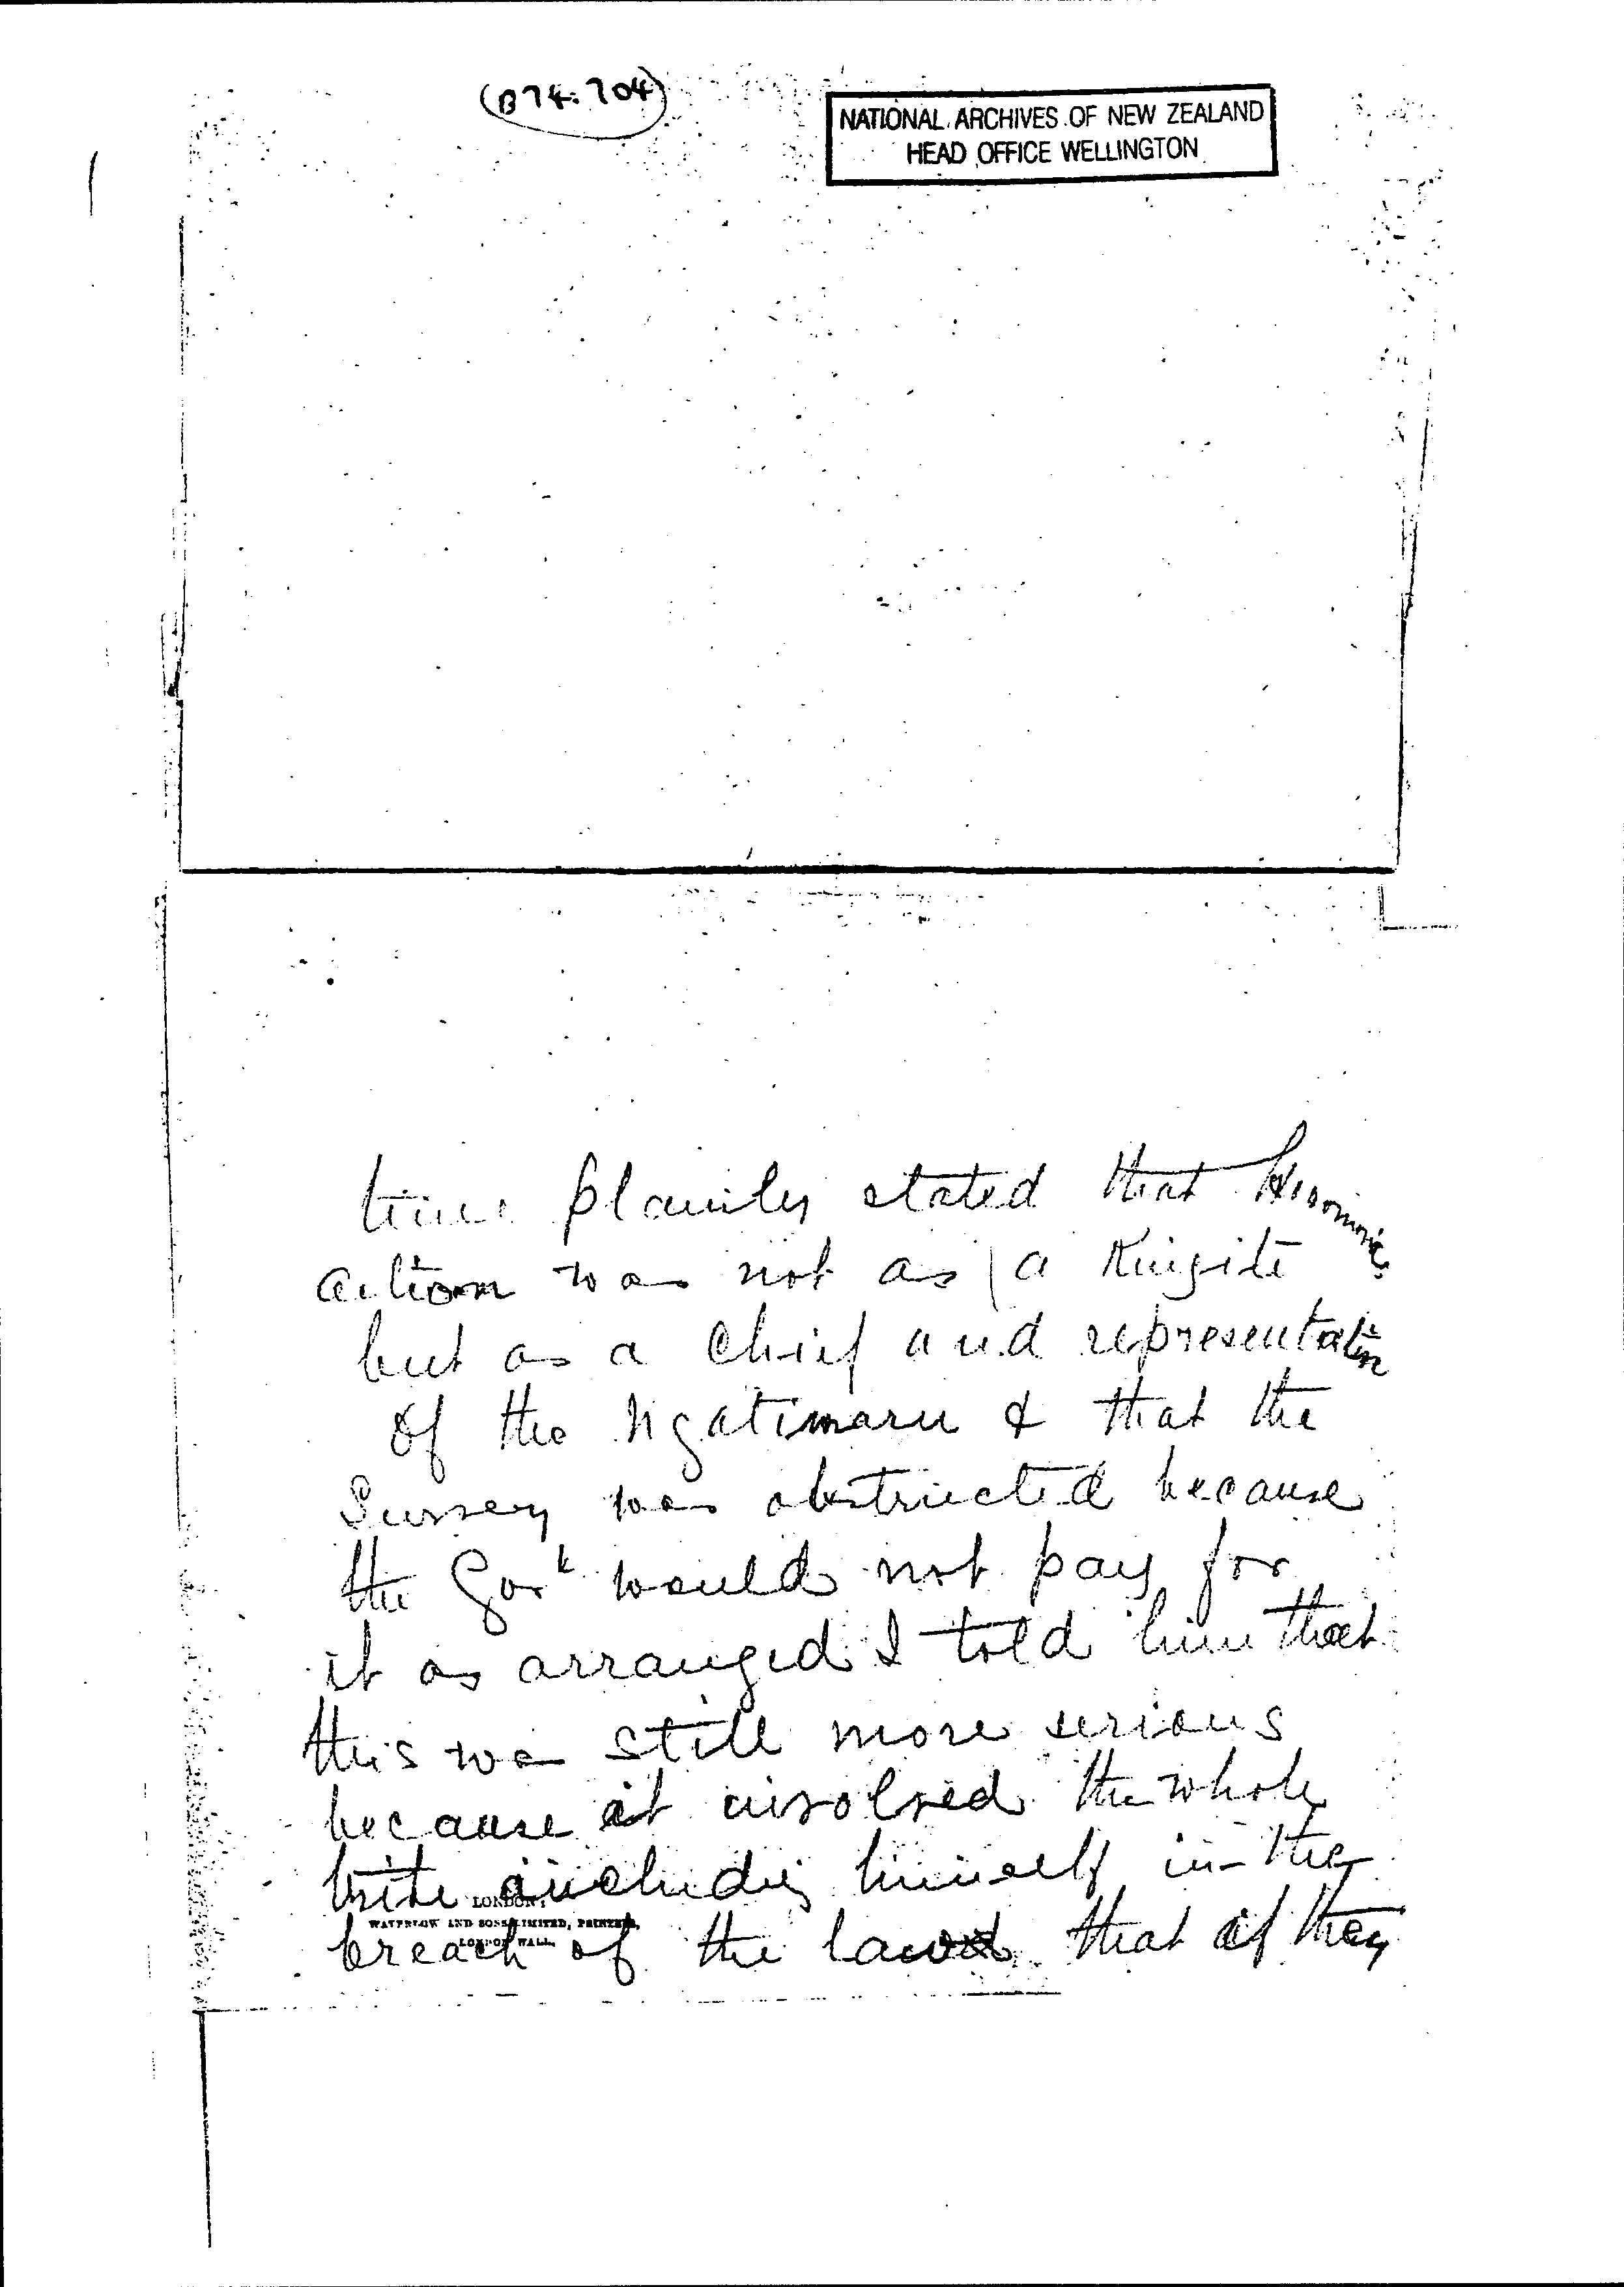 (B74:704)
NATIONAL ARCHIVES OF NEW ZEALAND
HEAD OFFICE WELLINGTON
time plainly stated that
action was not as a Kingite
but as a Chief and representative
of the Ngatimaru & that the
Survey was obstructed because
the Govt would not pay for
it as arranged I told him that
this was still more serious
because it involved the whole
tribe including himself in the
LONDON:
WATERLOW AND SONS LIMITED, PRINTERS,
LONDON WALL.
breach of the law & that if they